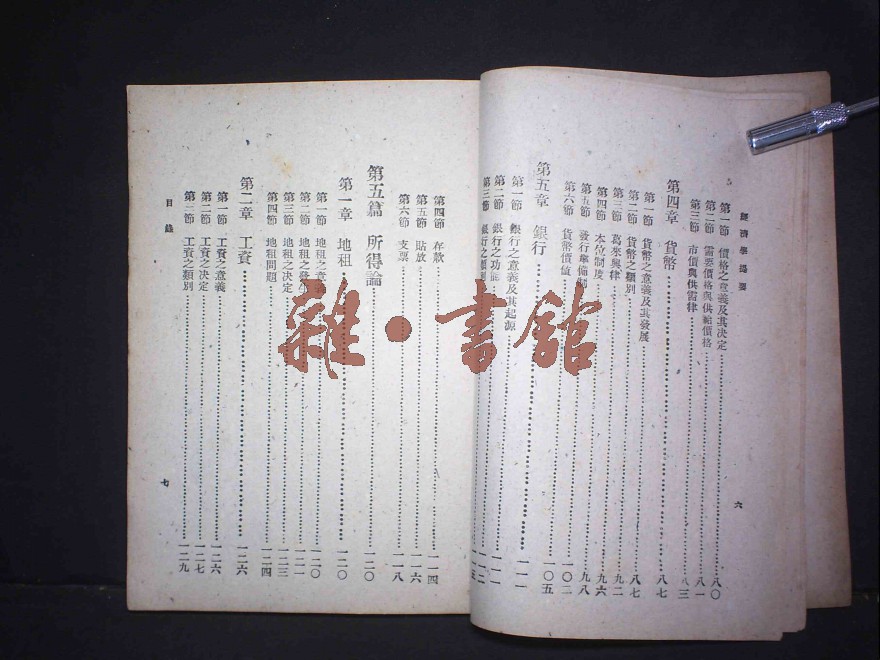 經濟學提要
六
第一節 價格之意義及其决定……八〇
第二節 需要價格與供給價格……八一
第三節 市價與供需律……八三
第四章 貨幣……八七
第一節 貨幣之意義及其發展……八七
第二節 貨幣之類別……九二
第三節 葛來興律……九六
第四節 本位制度……九八
第五節 發行準備制……一〇二
第六節 貨幣價值……一〇五
第五章 銀行……一一一
第一節 銀行之意義及其起源……一一一
第二節 銀行之功能
第三節 銀行之類別
第四節 存款……一一四
第五節 貼放……一一六
第六節 支票……一一八
第五篇 所得論……一二〇
第一章 地租……一二〇
第一節 地租之意義……一二〇
第二節 地租之發生……一二一
第三節 地租之决定……一二三
第四節 地租問題……一二四
第二章 工資……一二六
第一節 工資之意義……一二六
第二節 工資之决定……一二七
第三節 工資之類別……一二九
目錄
七
雜·書館